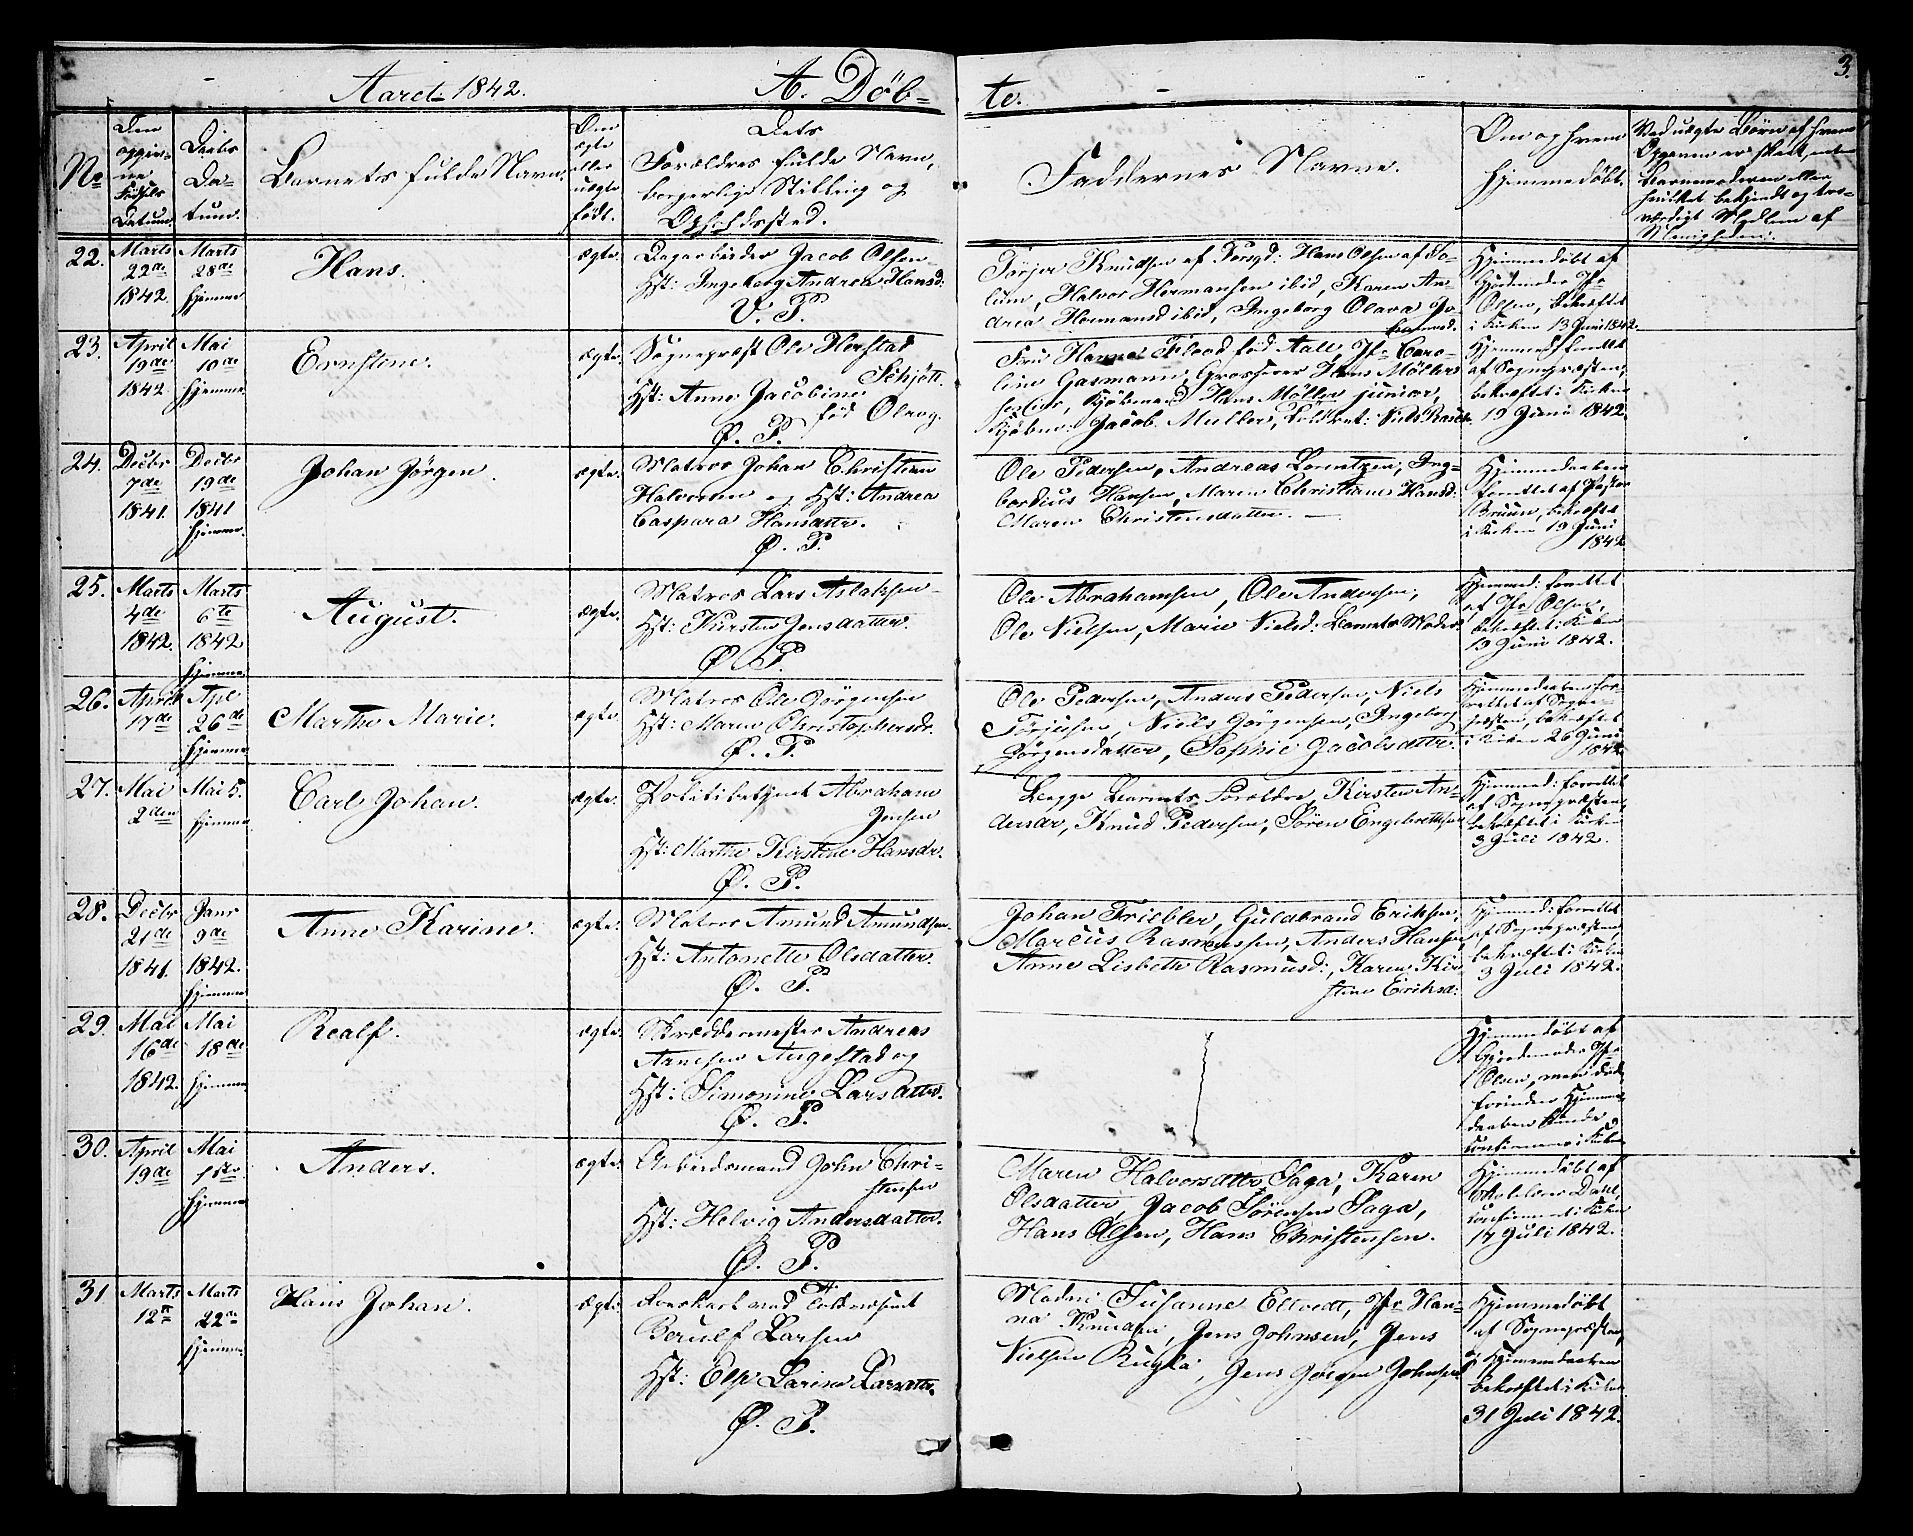 Aaret 1842.
A. Döb-
te.
3.
No
Den
opgiv-
ne
Födsels
Datum.
Daabs
Da-
tum.
Barnets fulde Navn.
Om
ægte
eller
uægte
födt.
Dets
Forældres fulde Navn,
borgerlige Stilling og
Opholdssted.
Faddernes Navne.
Om og hvem
hjemmedöbt.
Ved uægte Börn af hvem
Opgaven er skeet, enten
Barnemoderen eller
hvilket bekjendt og tro-
værdigt Medlem af
Menigheden.
22.
Marts
22de
1842.
Marts
28de
hjemme
Hans.
ægte.
Dagarbeider Jacob Olsen
Hst: Ingeborg Andrea Hansd:
V. P.
Törjer Knudsen af Porsgd: Hans Olsen af So-
lum, Halvor Hermansen ibid, Karen An-
drea Hermansd ibid, Ingeborg Olava Jo-
hannesd.
Hjemmedöbt af
Gjordemoder Jfr
Olsen, bekræftet
i Kirken 13 Juni 1842.
23.
April
19de
1842
Mai
10de
hjemme.
Ernstine.
ægte.
Sognepræst Ole Herstad
Schjött.
Hst: Anne Jacobine
föd Olrog.
Ø. P.
Fru Hanna Flood föd Aall, Jfr Caro-
line Gasmann, Grosserer Hans Möller
senior, Kjöbmand Hans Möller junior,
Kjöbm: Jacob Muller, Fuldmæt: Niels Basch
Hjemmed: forrettet
af Sognepræsten,
bekræftet i Kirken
19 Juni 1842.
24.
Decbr
7de
1841.
Decbr
19de
1841
hjemme.
Johan Jörgen.
ægte.
Matros Johan Christian
Halvorsen og Hst: Andrea
Caspara Hansdatr.
Ø. P.
Ole Pedersen, Andreas Lorentzen, Ing-
bordius Hansen, Maren Christiane Hansd:
Maren Christensdatter.
Hjemmedaaben
forrettet af Pastor
Bruun, bekræftet
i Kirken 19 Juni
1842
25.
Marts
4de
1842.
Marts
6te
1842
hjemme.
August.
ægte.
Matros Lars Aslaksen
Hst: Kirsten Jensdatter.
Ø. P.
Ole Abrahamsen, Ole Andersen,
Ole Nielsen, Marie Nielsd: Barnets Moder.
Hjemmed: forrettet
af Jfr Olsen,
bekræftet i Kirken
19 Juni 1842.
26.
April
17de
Apl
26de
hjemme.
Marthe Marie.
ægte.
Matros Ole Jörgensen
Hst: Maren Christophersdr.
Ø. P.
Ole Pedersen, Anders Pedersen, Niels
Törjusen, Niels Jörgensen, Ingeborg
Jörgensdatter, Sophie Jacobsdatter.
Hjemmedaaben for-
rettet af Sogne-
præsten, bekræftet
i Kirken 26 Juni
1842
27.
Mai
2den
Mai 5.
hjemme.
Carl Johan.
ægte.
Politibetjent Abraham
Jensen
Hst: Marthe Kirstine Hansdr.
Ø. P.
Begge Barnets Forældre, Kirsten An-
dersdr, Knud Pedersen, Sören Engebrethsen
Hjemmed: forrettet
af Sognepræsten,
bekræftet i Kirken
3 Juli 1842.
28.
Decbr
21de
1841.
Janr
9de
1842.
hjemme.
Anne Karine.
ægte.
Matros Amund Amundsen.
Hst: Antonette Olsdatter.
Ø. P.
Johan Triebler, Guldbrand Eriksen,
Marcus Rasmussen, Anders Hansen,
Anne Lisbeth Rasmusd:, Karen Kir-
stine Eriksd:
Hjemmed: forrettet
af Sognepræsten
bekræftet i Kirken
3 Juli 1842.
29.
Mai
16de
1842.
Mai
18de
hjemme
Realf.
ægte.
Skreddermester Andreas
Arnesen Augestad og
Hst: Simonine Larsdatter.
Ø. P.
Hjemmedöbt af
Gjordemoder Jfr
Olsen, men döde
forinden Hjemme-
daaben kunde
confirmeres i Kirken
30.
April
19de
Mai
1ste
hjemme
Anders.
ægte.
Arbeidsmand John Chri-
stensen
Hst: Helvig Andersdatter.
Ø. P.
Maren Halvorsdatter Saga, Karen
Olsdatter, Jacob Sörensen Saga,
Hans Olsen, Hans Christensen.
Hjemmedöbt af
Skolelærer Dahl,
confirmeret i Kirken
17 Juli 1842.
31
Marts
12te
Marts
22de
hjemme
Hans Johan.
ægte.
Toldassistent
Berulf Larsen
Hst: Else Larine Larsdtr.
Ø. P.
Madm: Susanne Eltvedt, Jfr Han-
na Knudsen, Jens Johnsen, Jens
Nielsen Rugla, Jens Jörgen Johnsen
Hjemmedöbt
af Sognepræsten
og Hjemmedaaben
bekræftet i Kirken
31 Juli 1842.